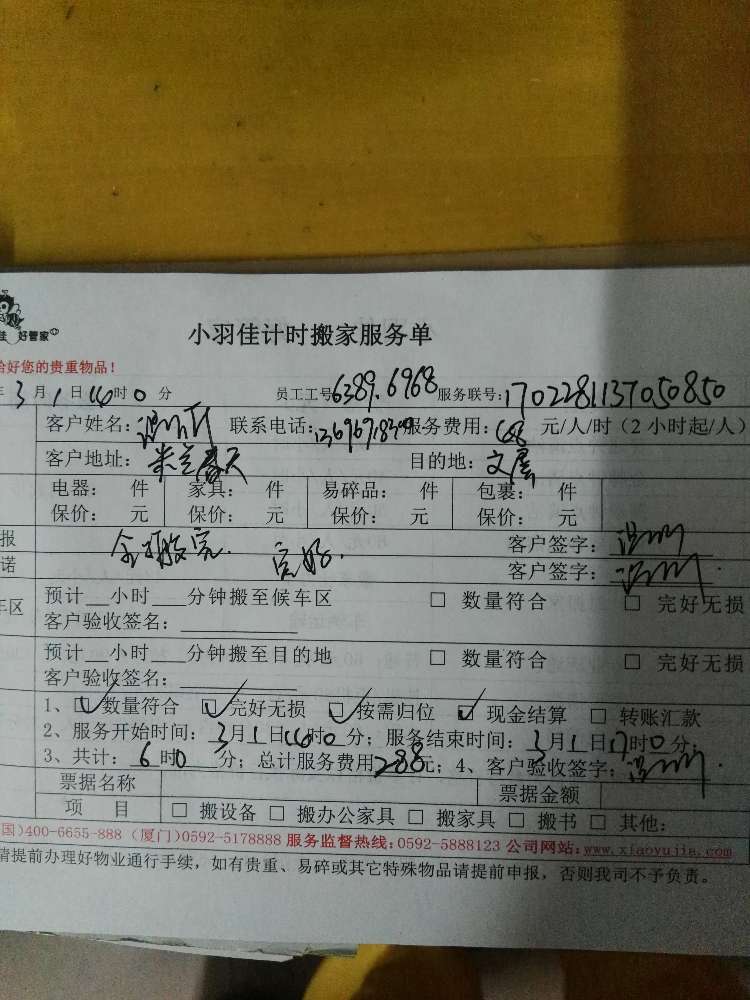 佳 好管家
小羽佳计时搬家服务单
您的贵重物品！
3月1日16时0分 员工工号6389.6968 服务联号：1702281137050850
客户姓名： 联系电话： 服务费用： 元/人/时（2小时起/人）
客户地址： 春天 目的地：文屏
电器： 件 家具： 件 易碎品： 件 包裹： 件
保价： 元 保价： 元 保价： 元 保价： 元
报 完好. 客户签字：
诺 客户签字：
车区 预计__小时___分钟搬至候车区 □ 数量符合 □ 完好无损
客户验收签名：
预计__小时___分钟搬至目的地 □ 数量符合 □ 完好无损
客户验收签名：
1、☑数量符合 ☑完好无损 ☑按需归位 ☑现金结算 □ 转账汇款
2、服务开始时间：3月1日16时0分；服务结束时间：3月1日17时0分；
3、共计：6时0分；总计服务费用288元；4、客户验收签字：
票据名称 票据金额
项 目 □ 搬设备 □ 搬办公家具 □ 搬家具 □ 搬书 □ 其他：
国)400-6655-888（厦门)0592-5178888 服务监督热线：0592-5888123 公司网站：www.xiaoyujia.com
请提前办理好物业通行手续，如有贵重、易碎或其它特殊物品请提前申报，否则我司不予负责。